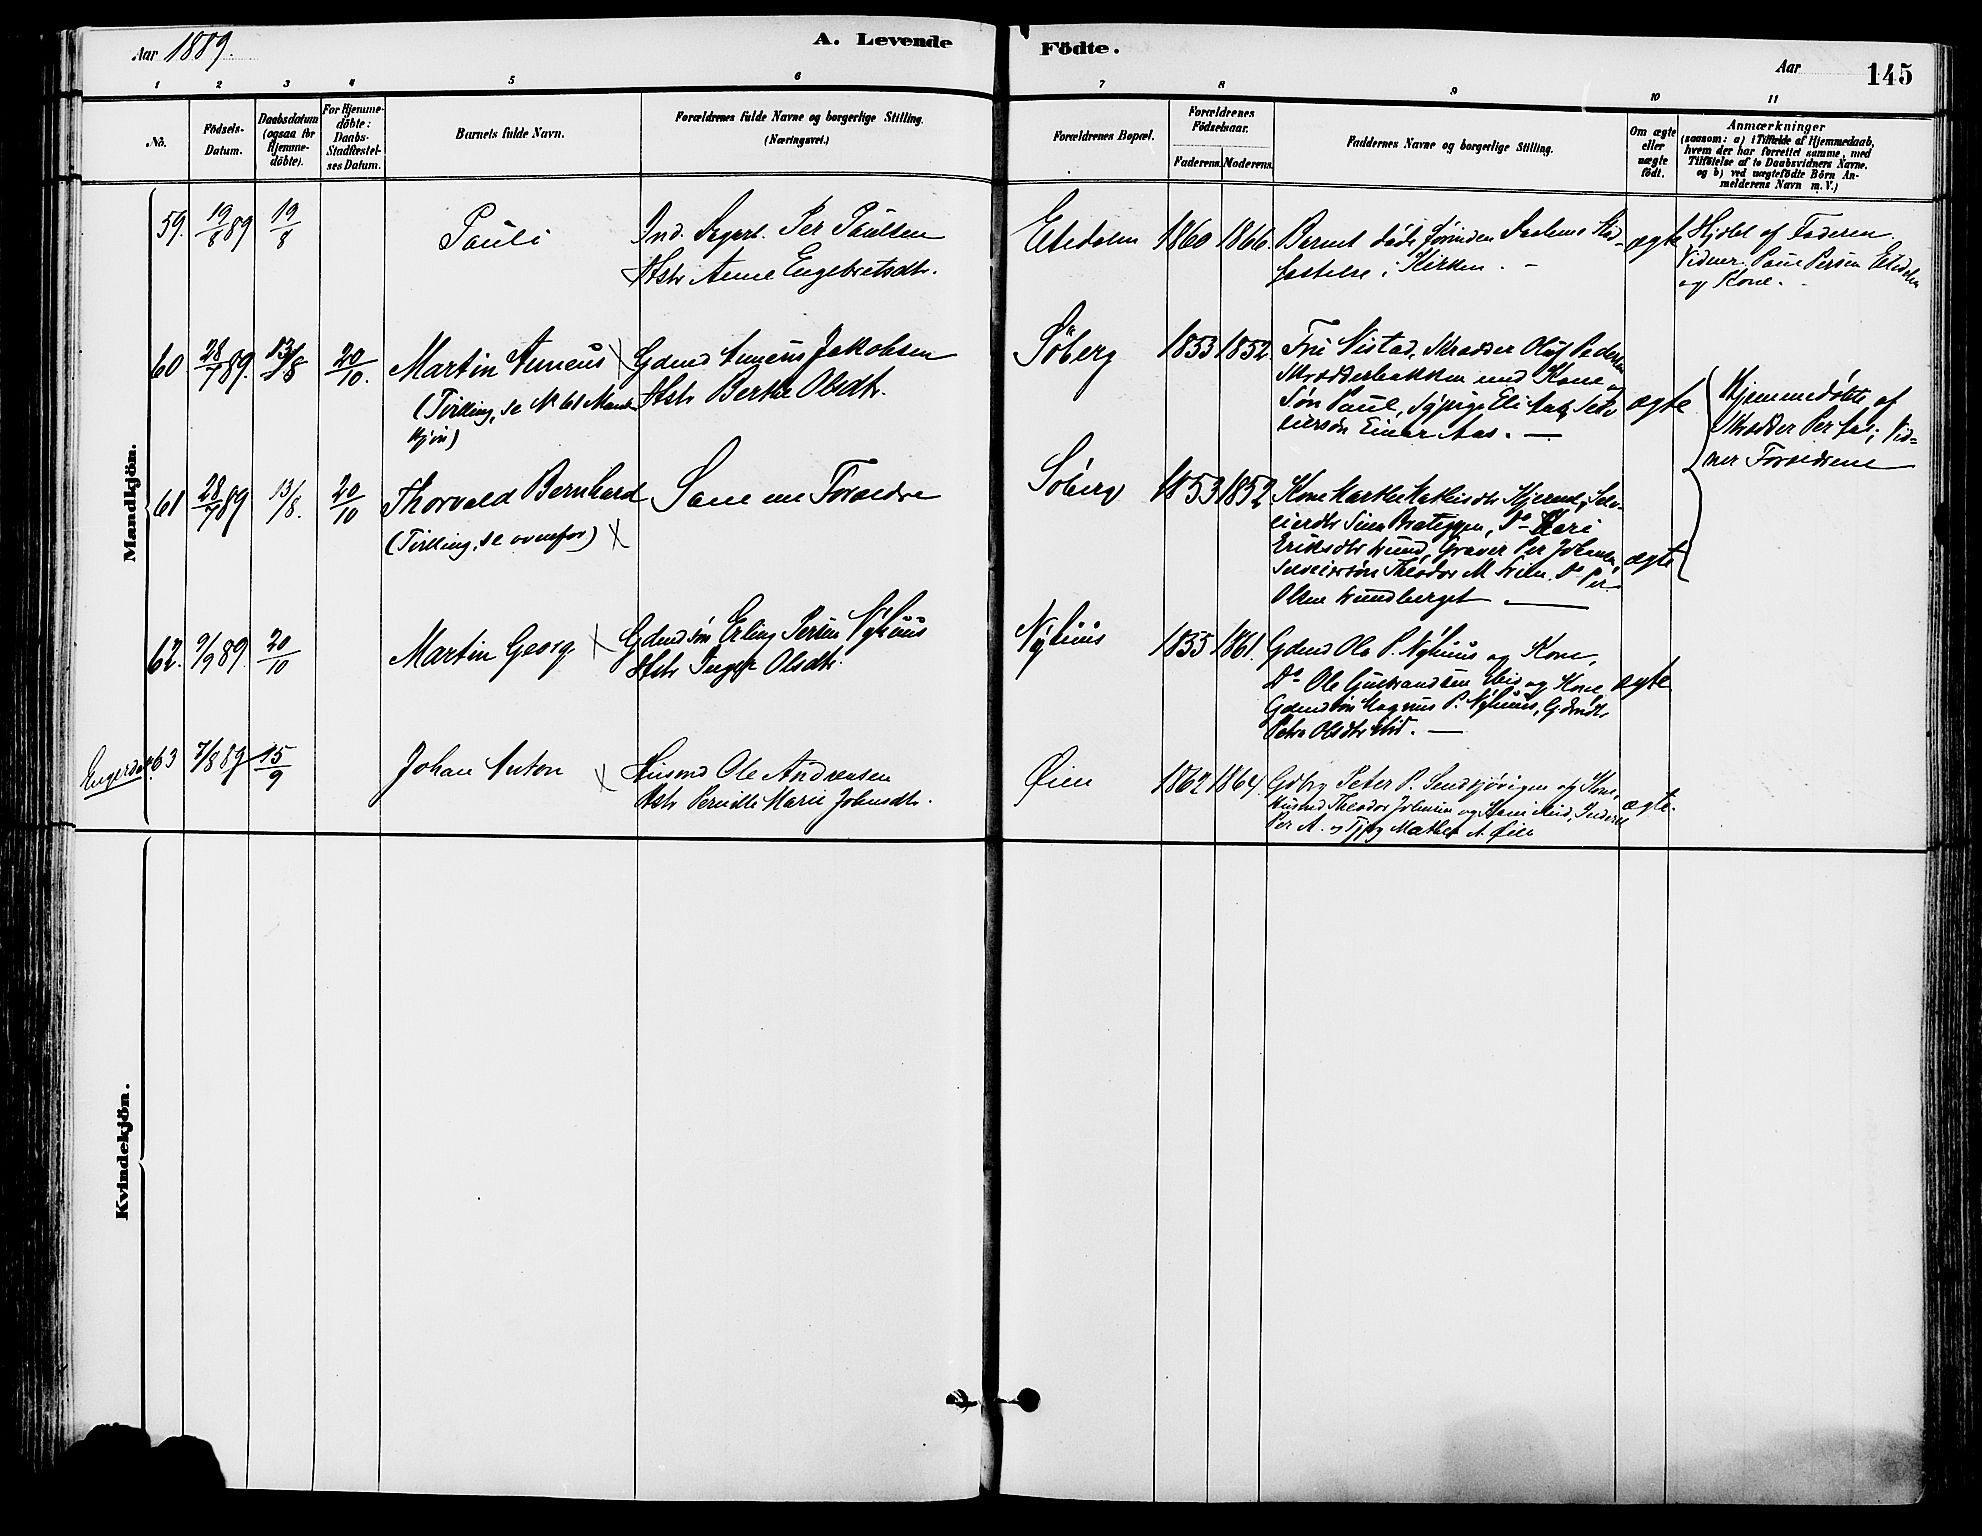 Aar 1889.
A. Levende
Födte.
Aar
145
1 2 3 4 5 6 7 8 9 10 11
No.
Födsels-
Datum.
Daabsdatum
(ogsaa for
Hjemme-
döbte).
For Hjemme-
döbte:
Daabs-
Stadfæstel-
ses Datum.
Barnets fulde Navn.
Forældrenes fulde Navne og borgerlige Stilling.
(Næringsvei.)
Forældrenes Bopæl.
Forældrenes
Födselsaar.
Faderens. Moderens.
Faddernes Navne og borgerlige Stilling.
Om ægte
eller
uægte
födt.
Anmærkninger
(saasom: a) i Tilfælde af Hjemmedaab,
hvem der har forrettet samme, med
Tilföielse af to Daabsvidners Navne.
og b) ved uægtefödte Börn An-
melderens Navn m. V.)
Mandkjön.
59. 19/8 89 19/8
Pauli
Ind. Per Paulsen
Hstr Anne Engebretsdtr.
1860 1866.
Barnet döde forinden Daabens Stad-
fæstelse i Kirken. -
ægte
Hjdbt af Faderen.
Vidner: Paul Persen
og Kone. -
60 28/7 89. 13/8 20/10.
Martin
(Tvilling, se N 61 Mand-
kjön)
Gdmd Jakobsen
Hstr Berthe Olsdtr.
Söberg
1853 1852.
Fru Nistad, Skrædder Oluf Pedersen
Skrædderbakken med Kone og
Sön Paul, Sypige Eli Aas, Selv-
eiersön Einar Aas. -
ægte
Hjemmedöbte af
Skrædder Per Aas; Vid-
ner Forældrene
61 28/7 89 13/8. 20/10
Thorvald Bernhard
(Tvilling, se ovenfor)
Samme Forældre
Söberg
1853 1852.
Kone Marthe Mathisdtr Selv-
eierdtr Do Kari
Eriksdtr Lund, Graver Per Johansen,
Selveiersön Theodor M. Do Per
Olsen Lundberget -
ægte
62. 9/9 89. 20/10
Martin Georg
Gdmdsön Erling Persen Nyhuus
Hstr Inger Olsdtr.
Nyhuus
1835 1861.
Gdmd Ole P. Nyhuus og Kone,
Do Ole Gulbrandsen og Kone,
Gdmdsön Magnus P. Nyhuus, Gdmdtr
Petra Olsdtr -
ægte
Engerdal. 63 7/8 89 15/9
Johan Anton
Husmd Ole Andreasen
Hstr Pernille Marie Johnsdtr.
Öien
1862 1864.
Gdbrg Peter P. og Kone,
Husmd Theodor Johnsen og Kone
Per A. og Tjpg Mathea A. Öien
ægte.
Kvindekjön.